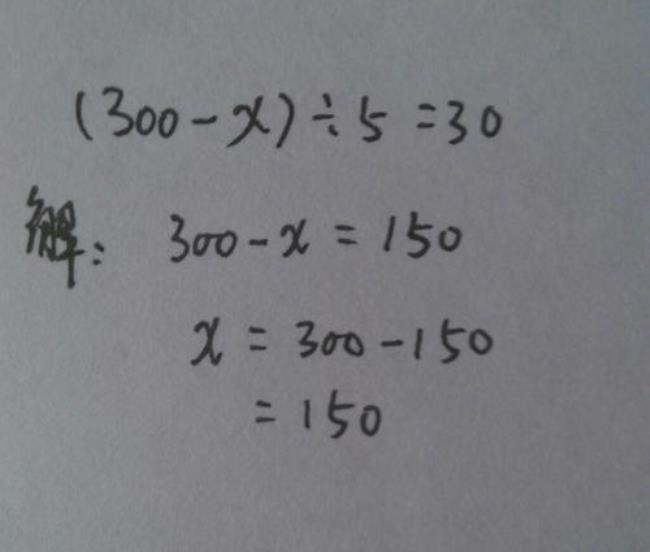 (300-x)÷5=30
解: 300-x=150
x=300-150
=150